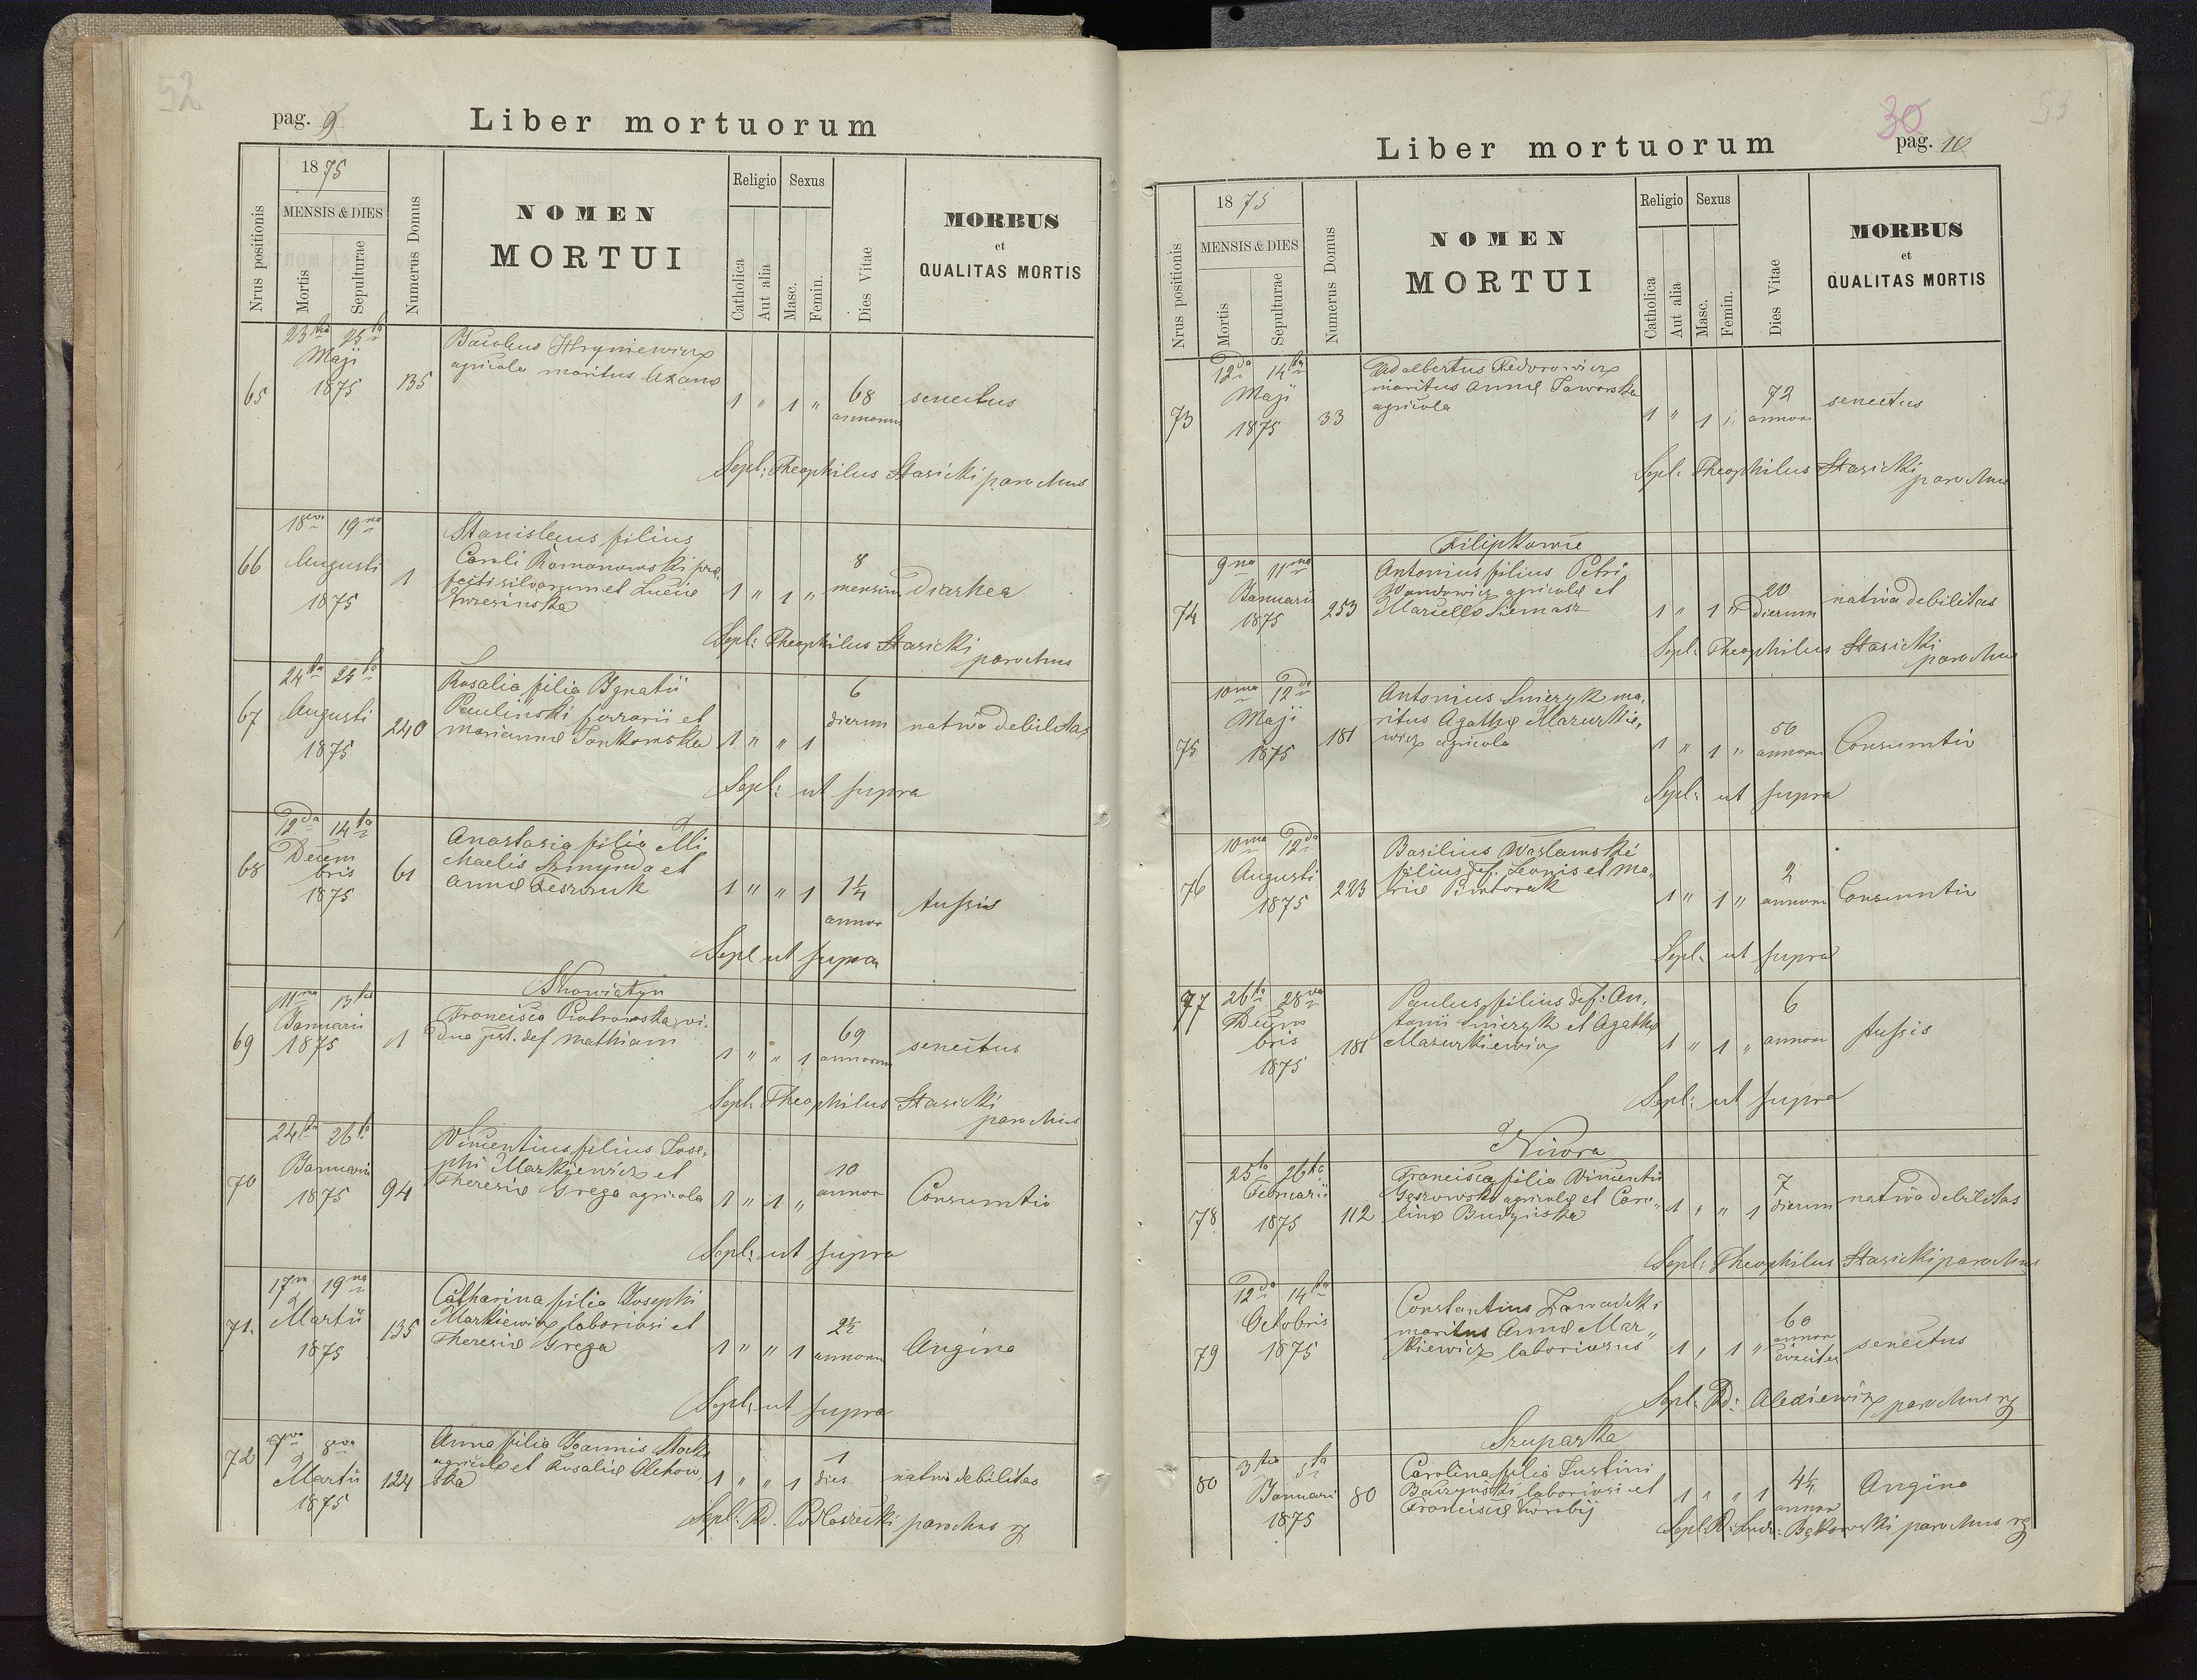 52
pag. 9
Liber mortuorum
Nrus positionis
1875
MENSIS & DIES
Mortis
Sepulturae
Numerus Domus
NOMEN
MORTUI
Religio
Catholica
Aut alia
Sexus
Masc.
Femin.
Dies Vitae
MORBUS
et
QUALITAS MORTIS
65
23tia 25ta
Maji
1875
135
Jacobus Hryniewicz
agricola maritus
1 " 1 "
68
annorum
senectus
Sepl: Theophilus Stasicki parochus
66
18va 19na
Augusti
1875
1
Stanislaus filius
Caroli Romanowski prae,
fecti silvarum et Luciae
1 " 1 "
8
mensium
diarhea
Sepl: Theophilus Stasicki
parochus
67
24ta 25ta
Augusti
1875
240
Rosalia filia Ignatii
Paulinski ferrarii et
Mariannae Jankowska
1 " " 1
6
dierum
nativa debilitas
Sepl: ut supra
68
12da 14ta
Decem
bris
1875
61
Anastasia filia Mi
chaelis et
Annae
1 " " 1
1½
annor
tussis
Sepl ut supra
69
11ma 13tia
Januarii
1875
1
Francisca Piotrowska vi,
dua pst. def Mathiam
1 " " 1
69
annorum
senectus
Sepl: Theophilus Stasicki
parochus
70
24ta 26ta
Januarii
1875
94
Vincentius filius Jose,
phi Markiewicz et
Theresiae Grega agricola
1 " 1 "
10
annor
Consumtio
Sepl: ut supra
71.
17ma 19na
Martii
1875
135
Catharina filia Josephi
Markiewicz laboriosi et
Theresiae Grega
1 " " 1
2½
annorum
Angina
Sepl: ut supra
72
7ma 8va
Martii
1875
124
Anna filia Joannis
agricolae et Rosaliae Olchow,
ska
1 " " 1
1
dies
nativa debilitas
Sepl: Rd. parochus rg
30
53
Liber mortuorum
pag. 10
Nrus positionis
1875
MENSIS & DIES
Mortis
Sepulturae
Numerus Domus
NOMEN
MORTUI
Religio
Catholica
Aut alia
Sexus
Masc.
Femin.
Dies Vitae
MORBUS
et
QUALITAS MORTIS
73
12da 14ta
Maji
1875
33
Adalbertus Fedorowicz
maritus Annae Jaworska
agricola
1 " 1 "
72
annorum
senectus
Sepl: Theophilus Stasicki
parochus
Filipkowce
74
9na 11ma
Januarii
1875
253
Antonius filius Petri
agricolae et
Marcella Siemasz
1 " 1 "
20
dierum
nativa debilitas
Sepl: Theophilus Stasicki
parochus
75
10ma 12da
Maji
1875
181
Antonius Snierzyk ma,
ritus Agathae Mazurkie,
wicz agricola
1 " 1 "
50
annorum
Consumtio
Sepl: ut supra
76
10ma 12da
Augusti
1875
223
Basilius Warlamski
filius def. Leonis et Ma,
riae
1 " 1 "
2
annorum
Consumtio
Sepl: ut supra
77
26ta 28va
Decem
bris
1875
181
Paulus filius def: An,
tonii Snierzyk et Agatha
Mazurkiewicz
1 " 1 "
6
annorum
tussis
Sepl: ut supra
Niwra
78
25ta 26ta
Februarii
1875
112
Francisca filia Vincentii
agricolae et Caro,
linae Budzinska
1 " " 1
7
dierum
nativa debilitas
Sepl: Theophilus Stasicki parochus
79
12da 14ta
Octobris
1875
Constantius Zawadzki
maritus Annae Mar,,
kiewicz laboriosus
1 " 1 "
60
annor
circiter
senectus
Sepl: Rd: Alexiewicz parochus rg
Szuparka
80
3tia 5ta
Januari
1875
80
Carolina filia Justini
Baczynski laboriosi et
Franciscae
1 " " 1
4½
annor
Angina
Sepl: R: Ludv: Bętkowski parochus rg